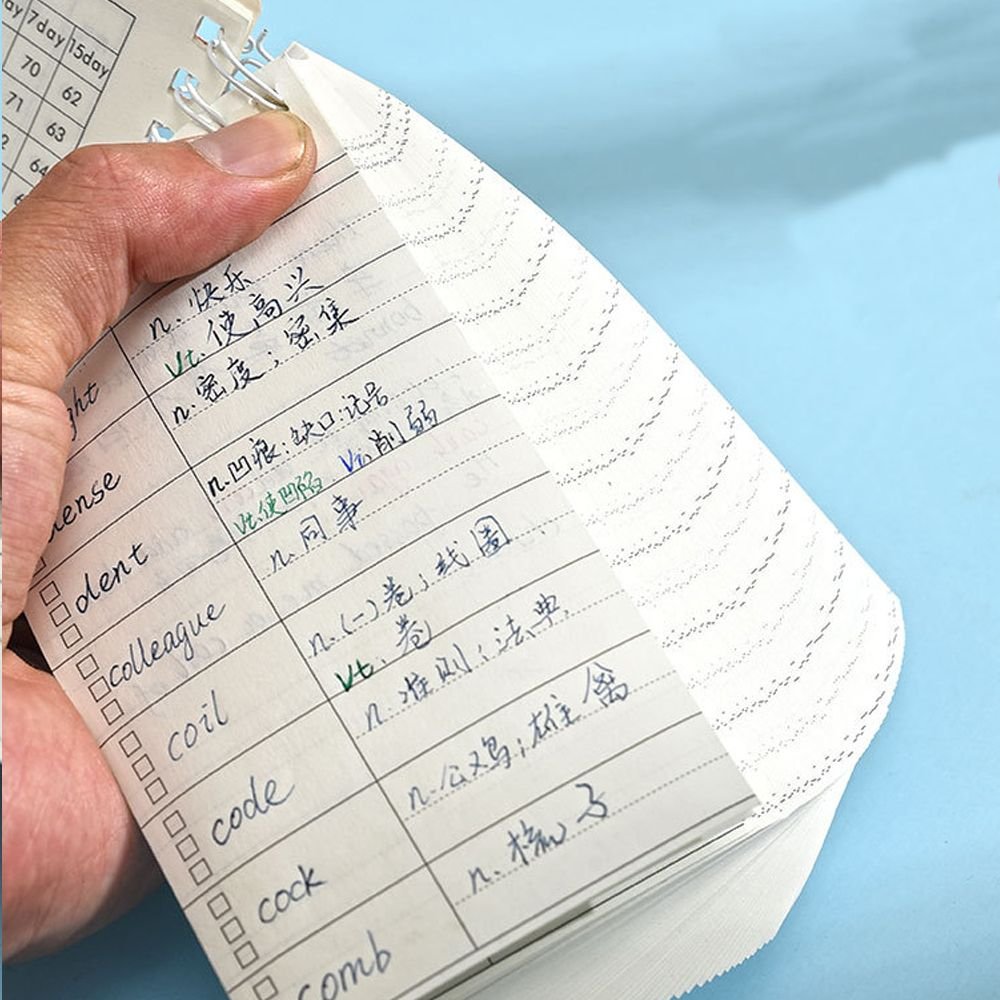 7day 15day
70 62
71 63
n. 快乐
vt. 使高兴
n. 密度；密集
n. 凹痕；缺口；记号
vt. 使凹陷 vi. 削弱
dent
n. 同事
colleague
n. (一)卷；线圈
vt. 卷
coil
n. 准则；法典
code
n. 公鸡；雄禽
cock
n. 梳子
comb